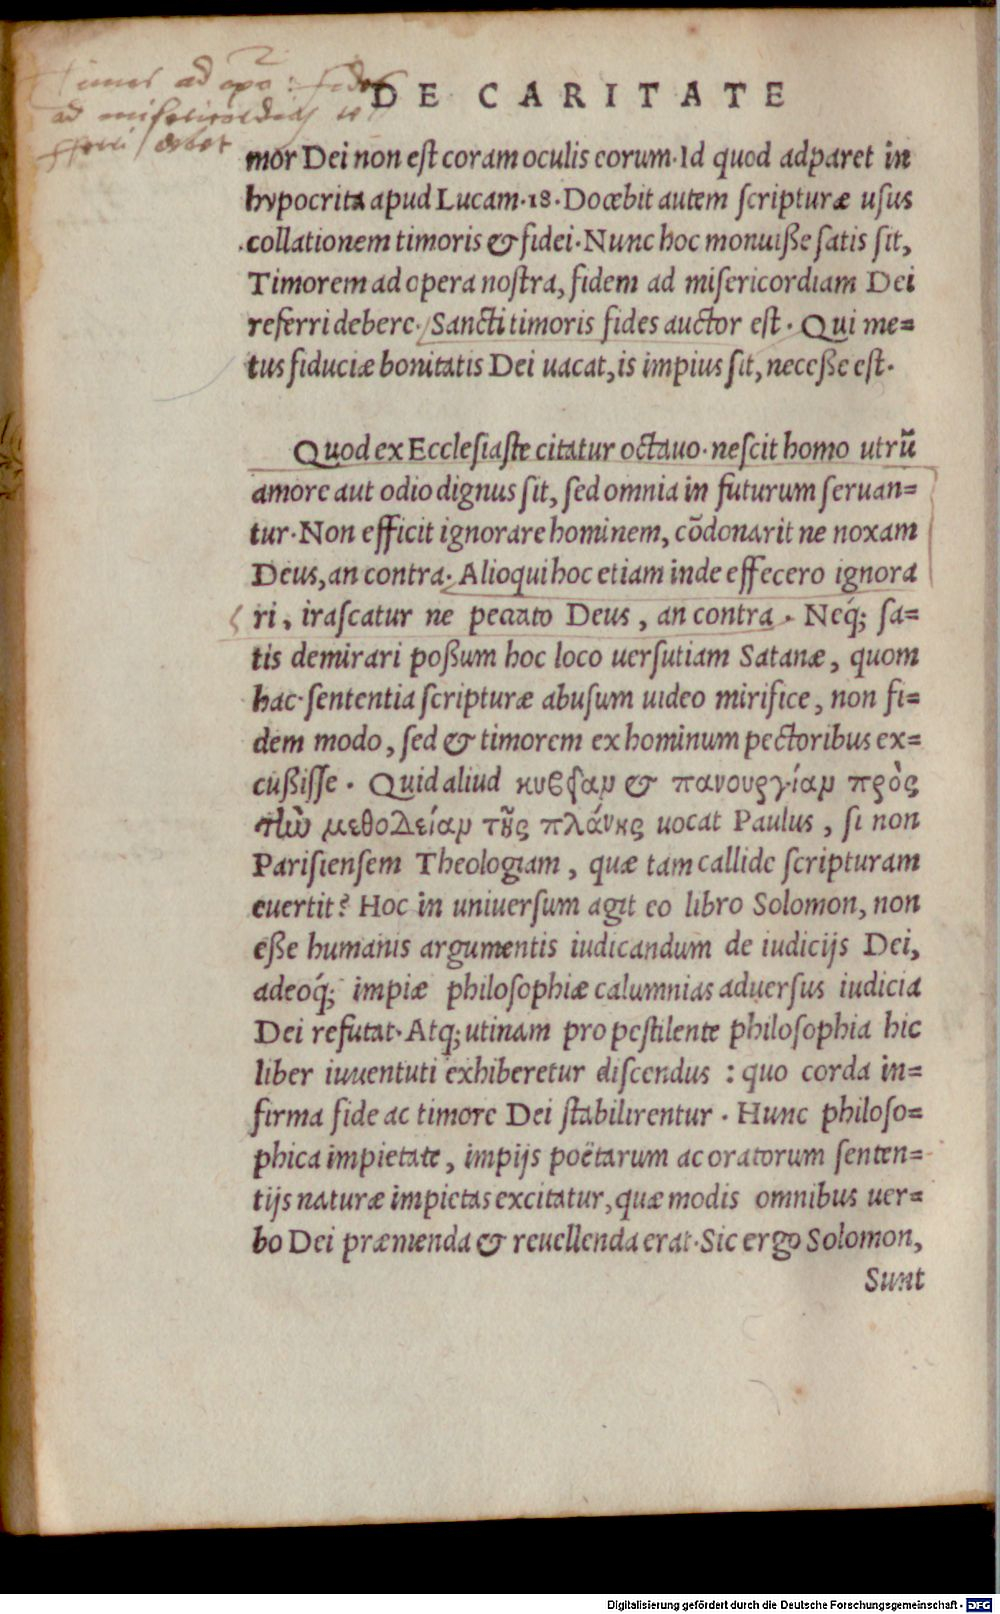 Timor ad opa: fides
ad misericordiam re
ferri debet
DE CARITATE
mor Dei non est coram oculis eorum. Id quod adparet in
hypocrita apud Lucam. 18. Docebit autem scripturæ usus
collationem timoris & fidei. Nunc hoc monuiße satis sit,
Timorem ad opera nostra, fidem ad misericordiam Dei
referri debere. Sancti timoris fides auctor est. Qui me=
tus fiduciæ bonitatis Dei uacat, is impius sit, neceße est.
Quod ex Ecclesiaste citatur octauo. nescit homo utrũ
amore aut odio dignus sit, sed omnia in futurum seruan=
tur. Non efficit ignorare hominem, cõdonarit ne noxam
Deus, an contra. Alioqui hoc etiam inde effecero ignora
ri, irascatur ne peccato Deus, an contra. Neq́; sa=
tis demirari poßum hoc loco uersutiam Satanæ, quom
hac sententia scripturæ abusum uideo mirifice, non fi=
dem modo, sed & timorem ex hominum pectoribus ex=
cußisse. Quid aliud κυβείαν & πανουργίαν πρὸς
τὴν μεθοδείαν τῆς πλάνης uocat Paulus, si non
Parisiensem Theologiam, quæ tam callide scripturam
euertit? Hoc in uniuersum agit eo libro Solomon, non
eße humanis argumentis iudicandum de iudicijs Dei,
adeoq́; impiæ philosophiæ calumnias aduersus iudicia
Dei refutat. Atq; utinam pro pestilente philosophia hic
liber iuuentuti exhiberetur discendus: quo corda in=
firma fide ac timore Dei stabilirentur. Hunc philoso=
phica impietate, impijs poëtarum ac oratorum senten=
tijs naturæ impietas excitatur, quæ modis omnibus uer=
bo Dei præmenda & reuellenda erat. Sic ergo Solomon,
Sunt
Digitalisierung gefördert durch die Deutsche Forschungsgemeinschaft - DFG